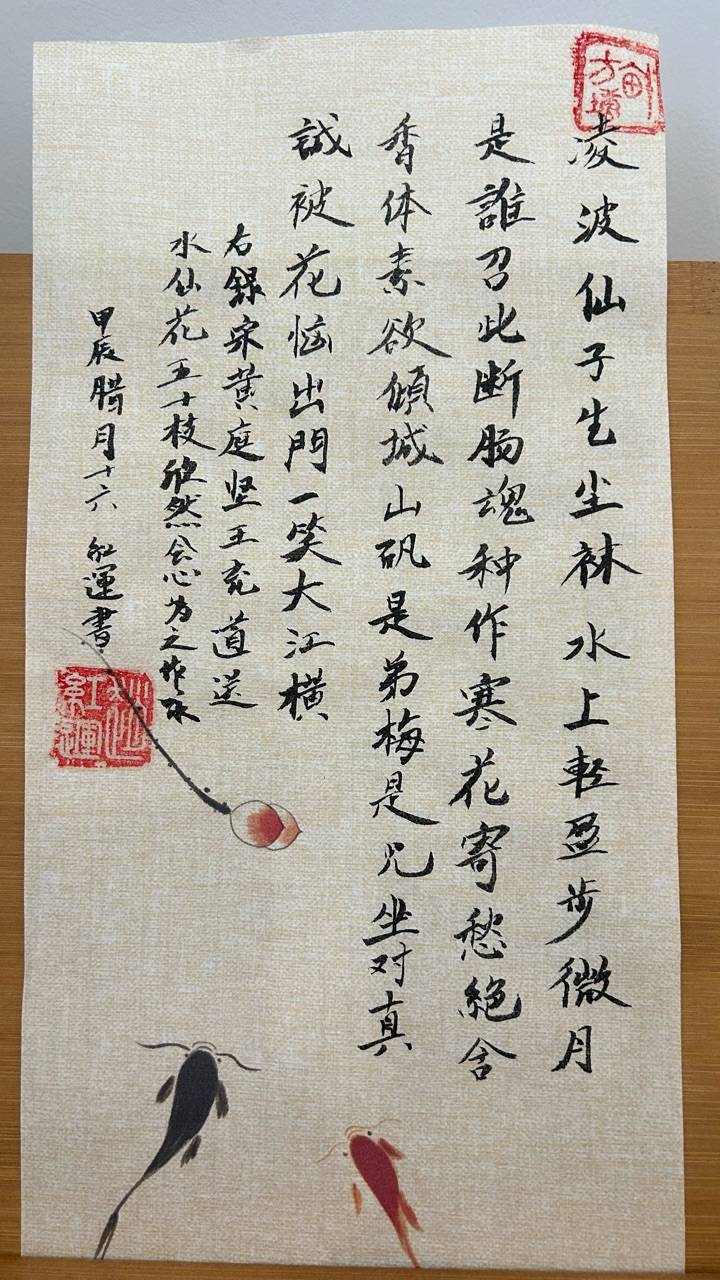 凌波仙子生尘袜水上輕盈步微月
是誰召此断肠魂种作寒花寄愁絕含
香体素欲傾城山矾是弟梅是兄坐对真
誠被花恼出門一笑大江橫
右録宋黄庭坚王充道送
水仙花五十枝欣然会心为之作咏
甲辰腊月十六 紅運書
紅運